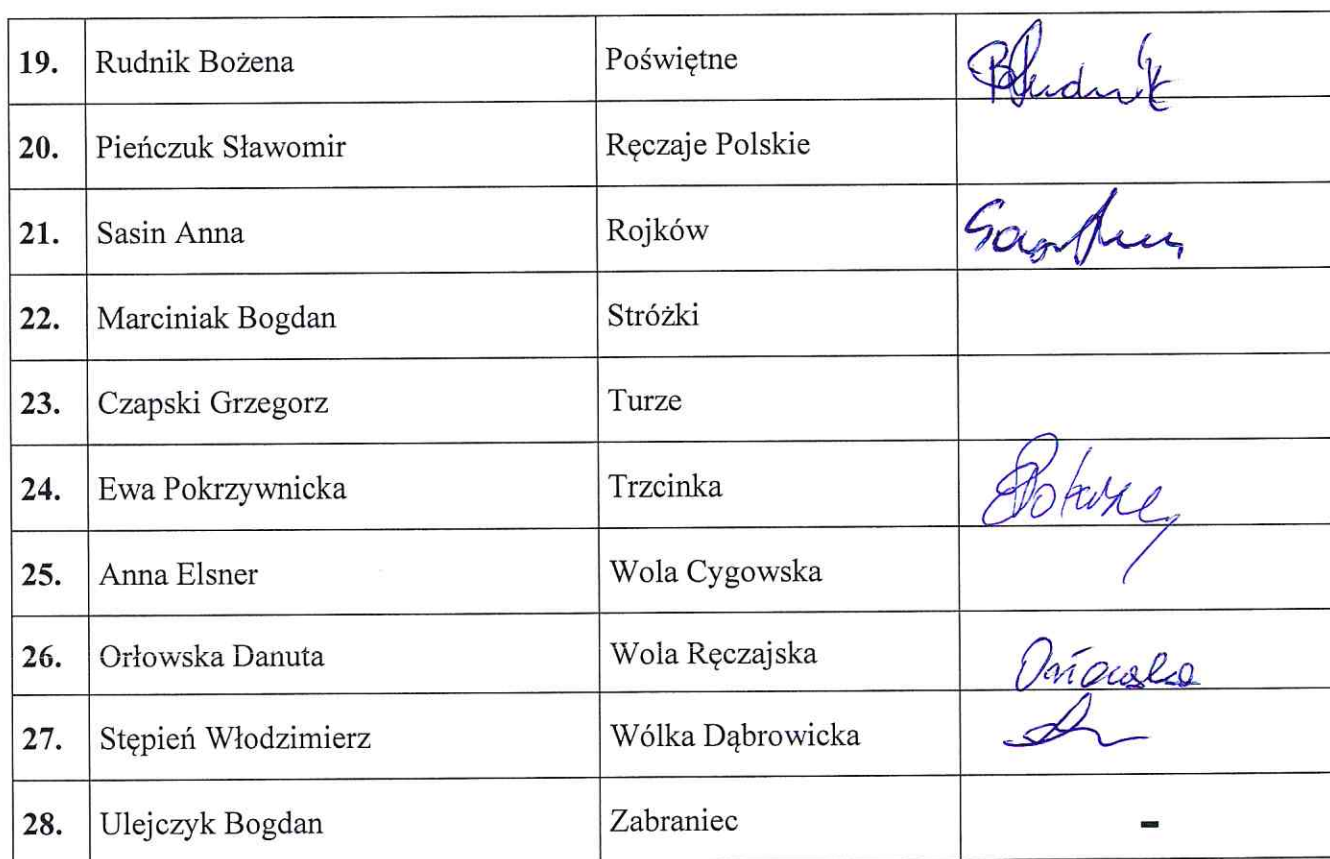 19. Rudnik Bożena Poświętne BRudnik
20. Pieńczuk Sławomir Ręczaje Polskie
21. Sasin Anna Rojków
22. Marciniak Bogdan Stróżki
23. Czapski Grzegorz Turze
24. Ewa Pokrzywnicka Trzcinka
25. Anna Elsner Wola Cygowska
26. Orłowska Danuta Wola Ręczajska Orłowska
27. Stępień Włodzimierz Wólka Dąbrowicka
28. Ulejczyk Bogdan Zabraniec -